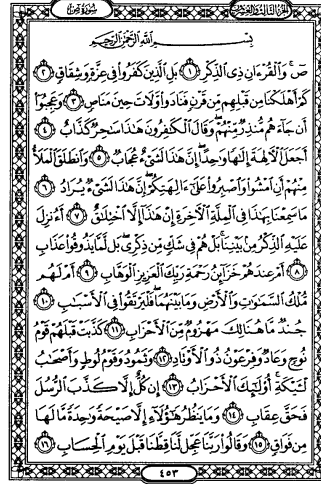 سُورَةُ صٓ الجزء الثالث والعشرون
بِسْمِ اللَّهِ الرَّحْمَٰنِ الرَّحِيمِ
صٓ ۚ وَالْقُرْءَانِ ذِى الذِّكْرِ ۝١ بَلِ الَّذِينَ كَفَرُوا فِى عِزَّةٍ وَشِقَاقٍ ۝٢
كَمْ أَهْلَكْنَا مِن قَبْلِهِم مِّن قَرْنٍ فَنَادَوا وَّلَاتَ حِينَ مَنَاصٍ ۝٣ وَعَجِبُوٓا
أَن جَآءَهُم مُّنذِرٌ مِّنْهُمْ ۖ وَقَالَ الْكَٰفِرُونَ هَٰذَا سَٰحِرٌ كَذَّابٌ ۝٤
أَجَعَلَ الْءَالِهَةَ إِلَٰهًا وَٰحِدًا ۖ إِنَّ هَٰذَا لَشَىْءٌ عُجَابٌ ۝٥ وَانطَلَقَ الْمَلَأُ
مِنْهُمْ أَنِ امْشُوا وَاصْبِرُوا عَلَىٰٓ ءَالِهَتِكُمْ ۖ إِنَّ هَٰذَا لَشَىْءٌ يُرَادُ ۝٦
مَا سَمِعْنَا بِهَٰذَا فِى الْمِلَّةِ الْءَاخِرَةِ إِنْ هَٰذَآ إِلَّا اخْتِلَٰقٌ ۝٧ أَءُنزِلَ
عَلَيْهِ الذِّكْرُ مِنۢ بَيْنِنَا ۚ بَلْ هُمْ فِى شَكٍّ مِّن ذِكْرِى ۖ بَل لَّمَّا يَذُوقُوا عَذَابِ
۝٨ أَمْ عِندَهُمْ خَزَآئِنُ رَحْمَةِ رَبِّكَ الْعَزِيزِ الْوَهَّابِ ۝٩ أَمْ لَهُم
مُّلْكُ السَّمَٰوَٰتِ وَالْأَرْضِ وَمَا بَيْنَهُمَا ۖ فَلْيَرْتَقُوا فِى الْأَسْبَٰبِ ۝١٠
جُندٌ مَّا هُنَالِكَ مَهْزُومٌ مِّنَ الْأَحْزَابِ ۝١١ كَذَّبَتْ قَبْلَهُمْ قَوْمُ
نُوحٍ وَعَادٌ وَفِرْعَوْنُ ذُو الْأَوْتَادِ ۝١٢ وَثَمُودُ وَقَوْمُ لُوطٍ وَأَصْحَٰبُ
لْـَٔيْكَةِ ۚ أُولَٰٓئِكَ الْأَحْزَابُ ۝١٣ إِن كُلٌّ إِلَّا كَذَّبَ الرُّسُلَ
فَحَقَّ عِقَابِ ۝١٤ وَمَا يَنظُرُ هَٰٓؤُلَآءِ إِلَّا صَيْحَةً وَٰحِدَةً مَّا لَهَا
مِن فَوَاقٍ ۝١٥ وَقَالُوا رَبَّنَا عَجِّل لَّنَا قِطَّنَا قَبْلَ يَوْمِ الْحِسَابِ ۝١٦
٤٥٣